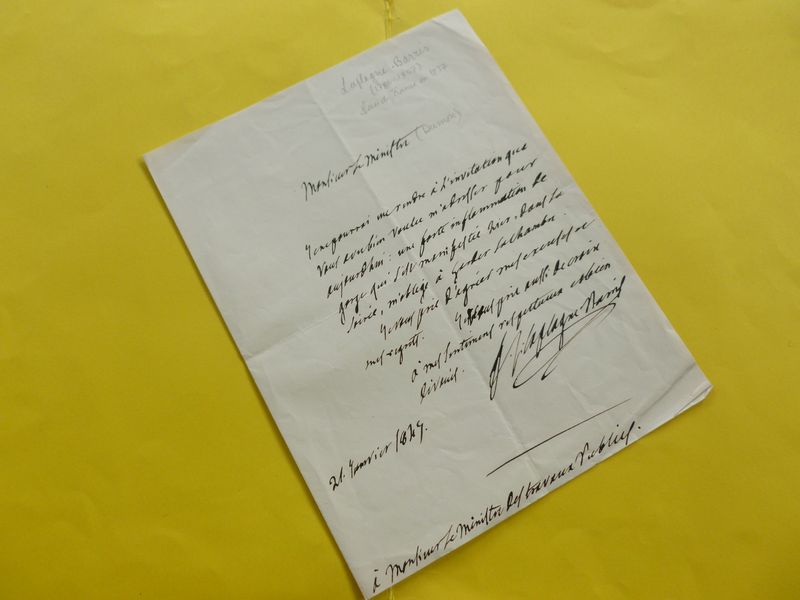 Laplagne-Barris
Monsieur Le Ministre (Dumon)
Je ne pourrai me rendre à L'invitation que
vous avez bien voulu m'adresser pour
aujourd'hui : une forte inflammation de
gorge qui s'est manifestée hier, dans la
soirée, m'oblige à garder la chambre.
Je vous prie d'agréer mes excuses et
mes regrets. Je vous prie aussi de croire
à mes sentiments respectueux et bien
Laplagne Barris
21. Janvier 1847.
à Monsieur Le Ministre Des travaux Publics.